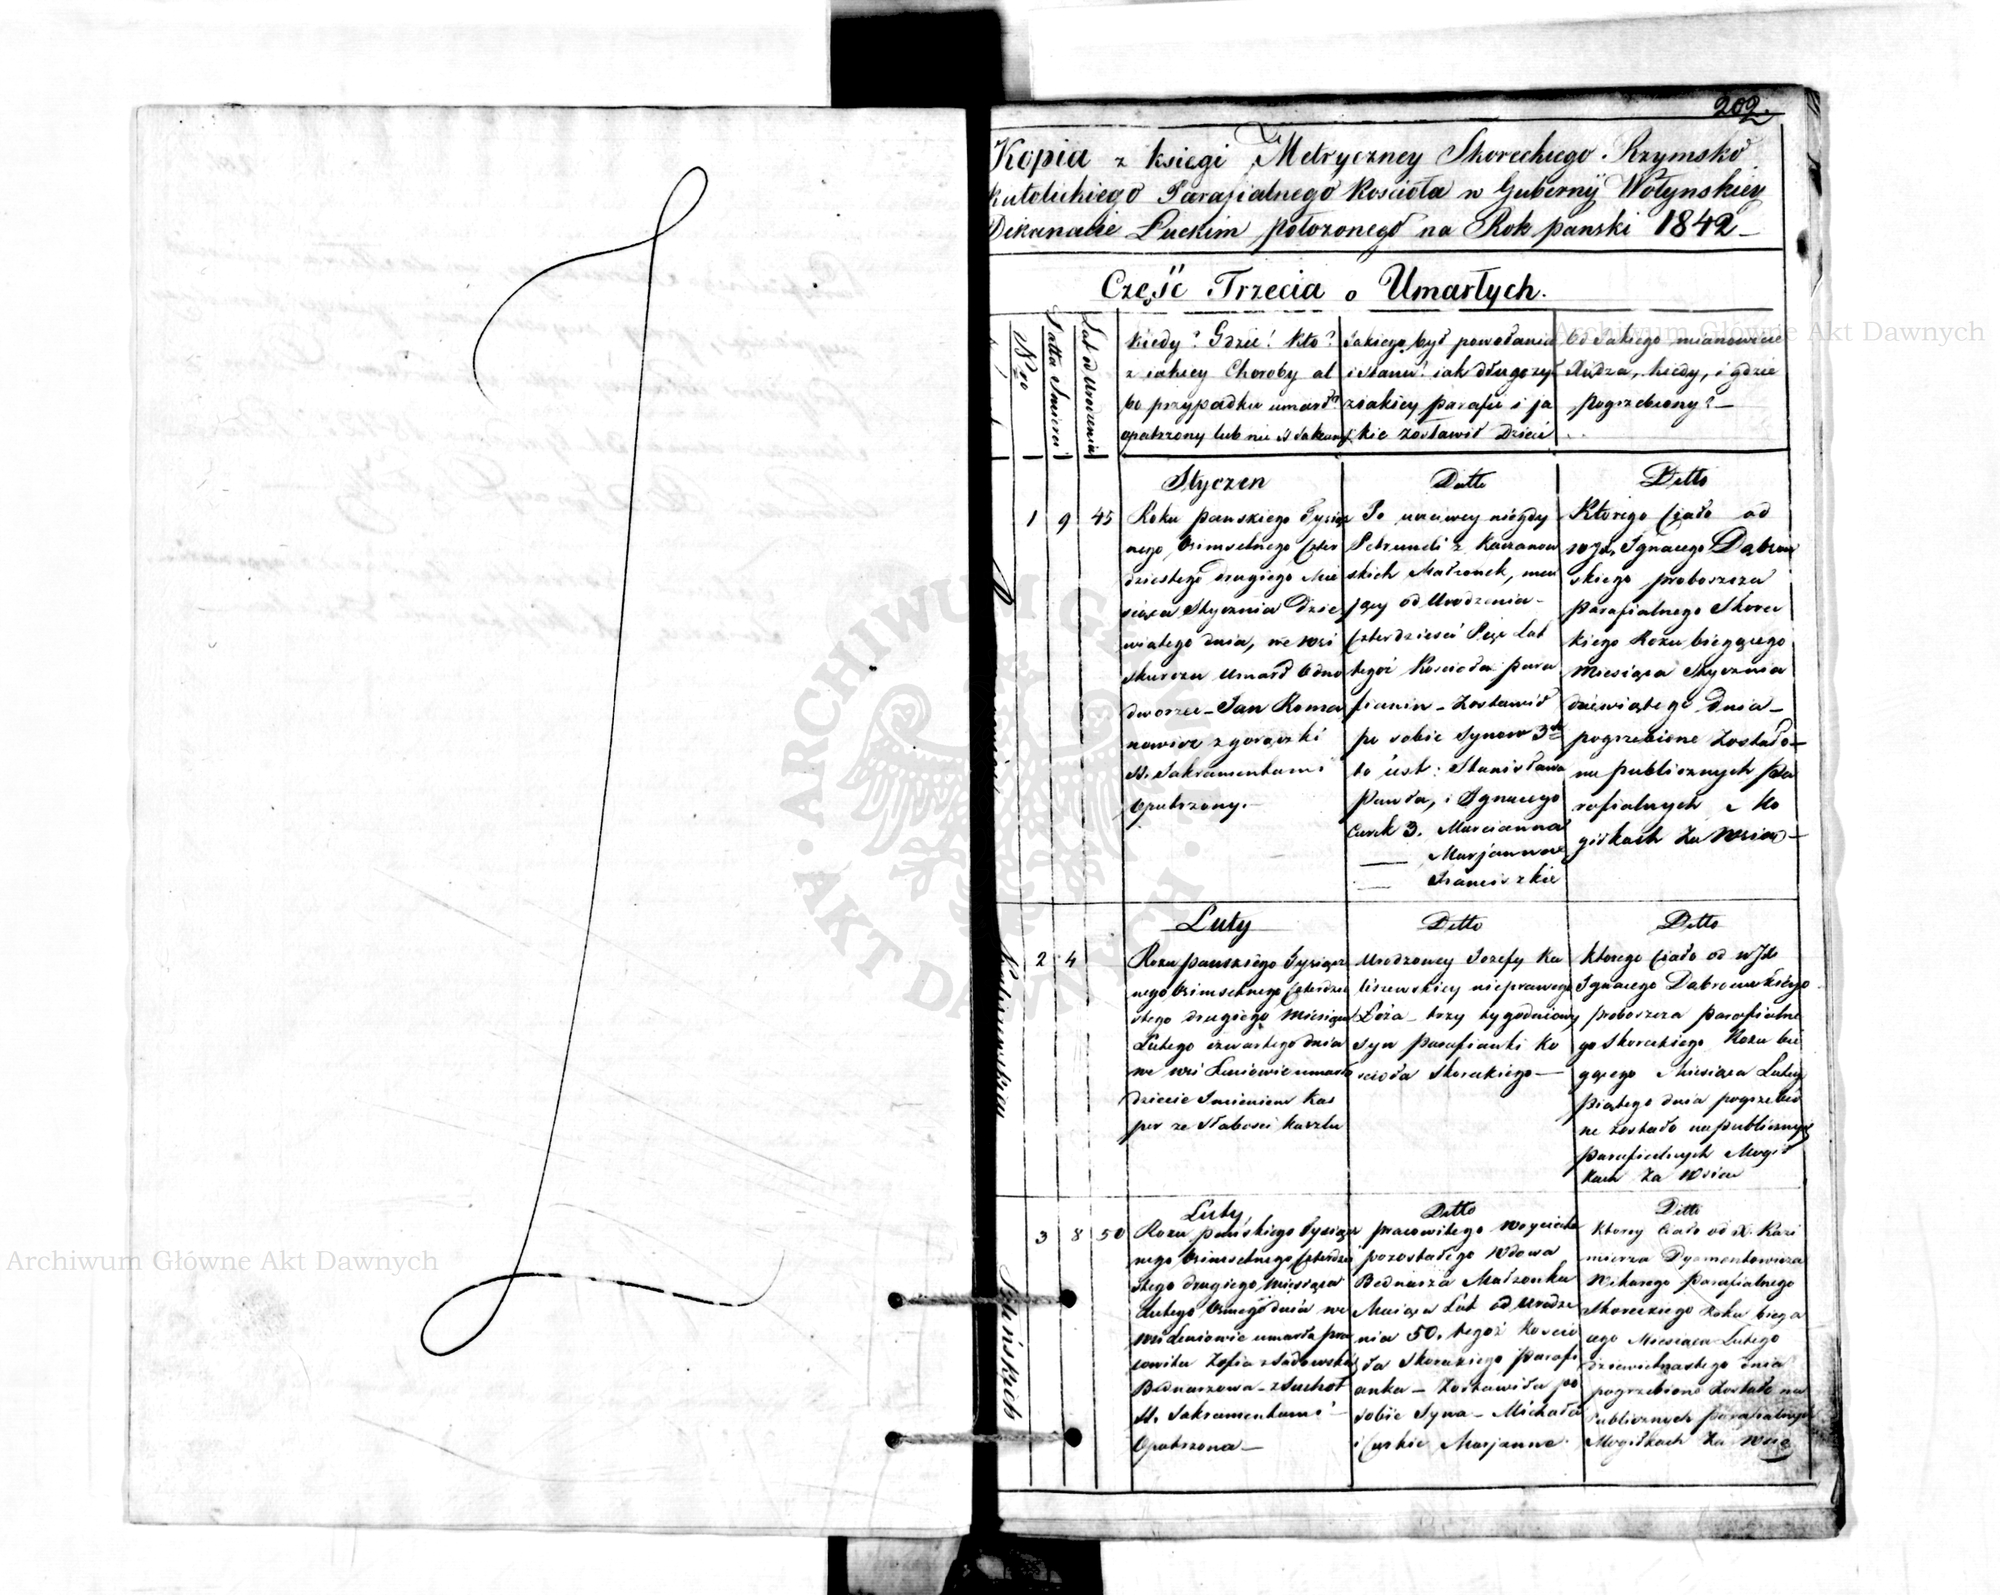 202.
Kopia z księgi Metryczney Skoreckiego Rzymsko
Katolickiego Parafialnego Kościoła w Gubernÿ Wołynskiey
Dikanacie Łuckim położonego na Rok panski 1842
Część Trzecia o Umarłych.
Nro
Datta Smierci
Lat od Urodzenia
Kiedy? Gdzie! Kto?
z iakiey Choroby al
bo przypadku umarł?
opatrzony lub nie SS Sakrament
Jakiego był powołania
i stanu! iak długo żył
z iakiey parafii i ja
kie zostawił Dzieci
Od Jakiego mianowicie
Xiędza, kiedy, i gdzie
Pogrzebiony?
Styczen
1 9 45
Roku panskiego Tysiącz
nego Osimsetnego Czter
dziestego drugiego Mie
siąca Stycznia Dzie
wiątego dnia, we wsi
Skurczu Umarł Odno
dworzec Jan Roma
nowicz z gorączki
SS. Sakramentami
Opatrzony.
Ditto
Po uczciwey niegdy
Petruneli z Kaczanow
skich Małżonek, mea
jący od Urodzenia
Czterdzieści Pięć Lat
tegoż Kościoła para
fianin Zostawił
po sobie Synow 3ch
to iest: Stanisława
Pawła, i Ignacego
Curek 3. Marcianna
Marjanna
Franciszkie
Ditto
Którego Ciało od
Ignacego Dąbrow
skiego proboszcza
parafialnego Skorec
kiego Roku biegącego
Miesiąca Stycznia
dziewiątego dnia
pogrzebione Zostało
na publicznych Pa
rafialnych Mo
giłkach Za Wsią
Luty
Kaliszewskiey
2 4
Roku panskiego Tysiącz
nego Osimsetnego Czterdzie
stego drugiego Miesiąca
Lutego czwartego dnia
we wsi Leniowie umarło
dziecie Imieniem Kas
per ze słabości kaszlu
Ditto
Urodzoney Jozefy Ka
liszewskiey nieprawego
Łoża trzy tygodniowy
Syn parafianki Ko
ścioła Skoreckiego
Ditto
Ktorego Ciało od WJX
Ignacego Dabrowskiego
proboszcza parafialne
go Skoreckiego Roku bie
gącego Miesiąca Lutego
piątego dnia pogrzebio
ne zostało na publicznych
parafialnych Mogił
kach Za Wsią
Luty
3 8 50
Roku panskiego Tysiącz
nego Osimsetnego Czterdzie
stego drugiego Miesiąca
Lutego Osmego dnia we
wsi Leniowie umarła pra
cowita Zofia z Sadowskich
Bednarzowa z Suchot
SS. Sakramentami
Opatrzona
Ditto
pracowitego Woyciecha
pozostałego Wdowca
Bednarza Małżonka
Maiąca Lat od Urodze
nia 50. tegoż Kościo
ła Skoreckiego Parafi
anka Zostawiła po
sobie Syna Michała
i Curkie Marjanne
Ditto
Ktorey Ciało od X. Kazi
mierza Dyamentowicza
Wikarego Parafialnego
Skoreckiego Roku biegą
cego Miesiąca Lutego
dziewietnastego dnia
pogrzebione Zostało na
Publicznych Parafialnych
Mogiłkach Za Wsią
Archiwum Główne Akt Dawnych
Archiwum Główne Akt Dawnych
ARCHIWUM GŁÓWNE AKT DAWNYCH